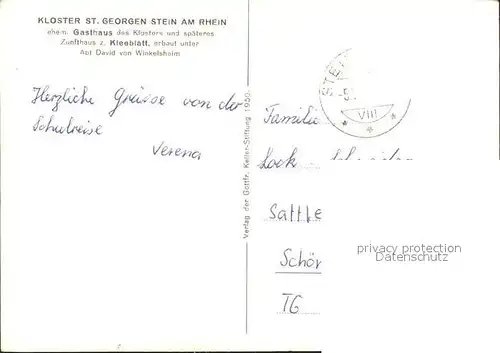 KLOSTER ST. GEORGEN STEIN AM RHEIN
ehem. Gasthaus des Klosters und späteres
Zunfthaus z. Kleeblatt, erbaut unter
Abt David von Winkelsheim
Herzliche Grüsse von der
Schulreise
Verena
Verlag der Gottfr. Keller-Stiftung 1950.
STE
VIII
Familie
Sattle
Schön
TG
privacy protection
Datenschutz